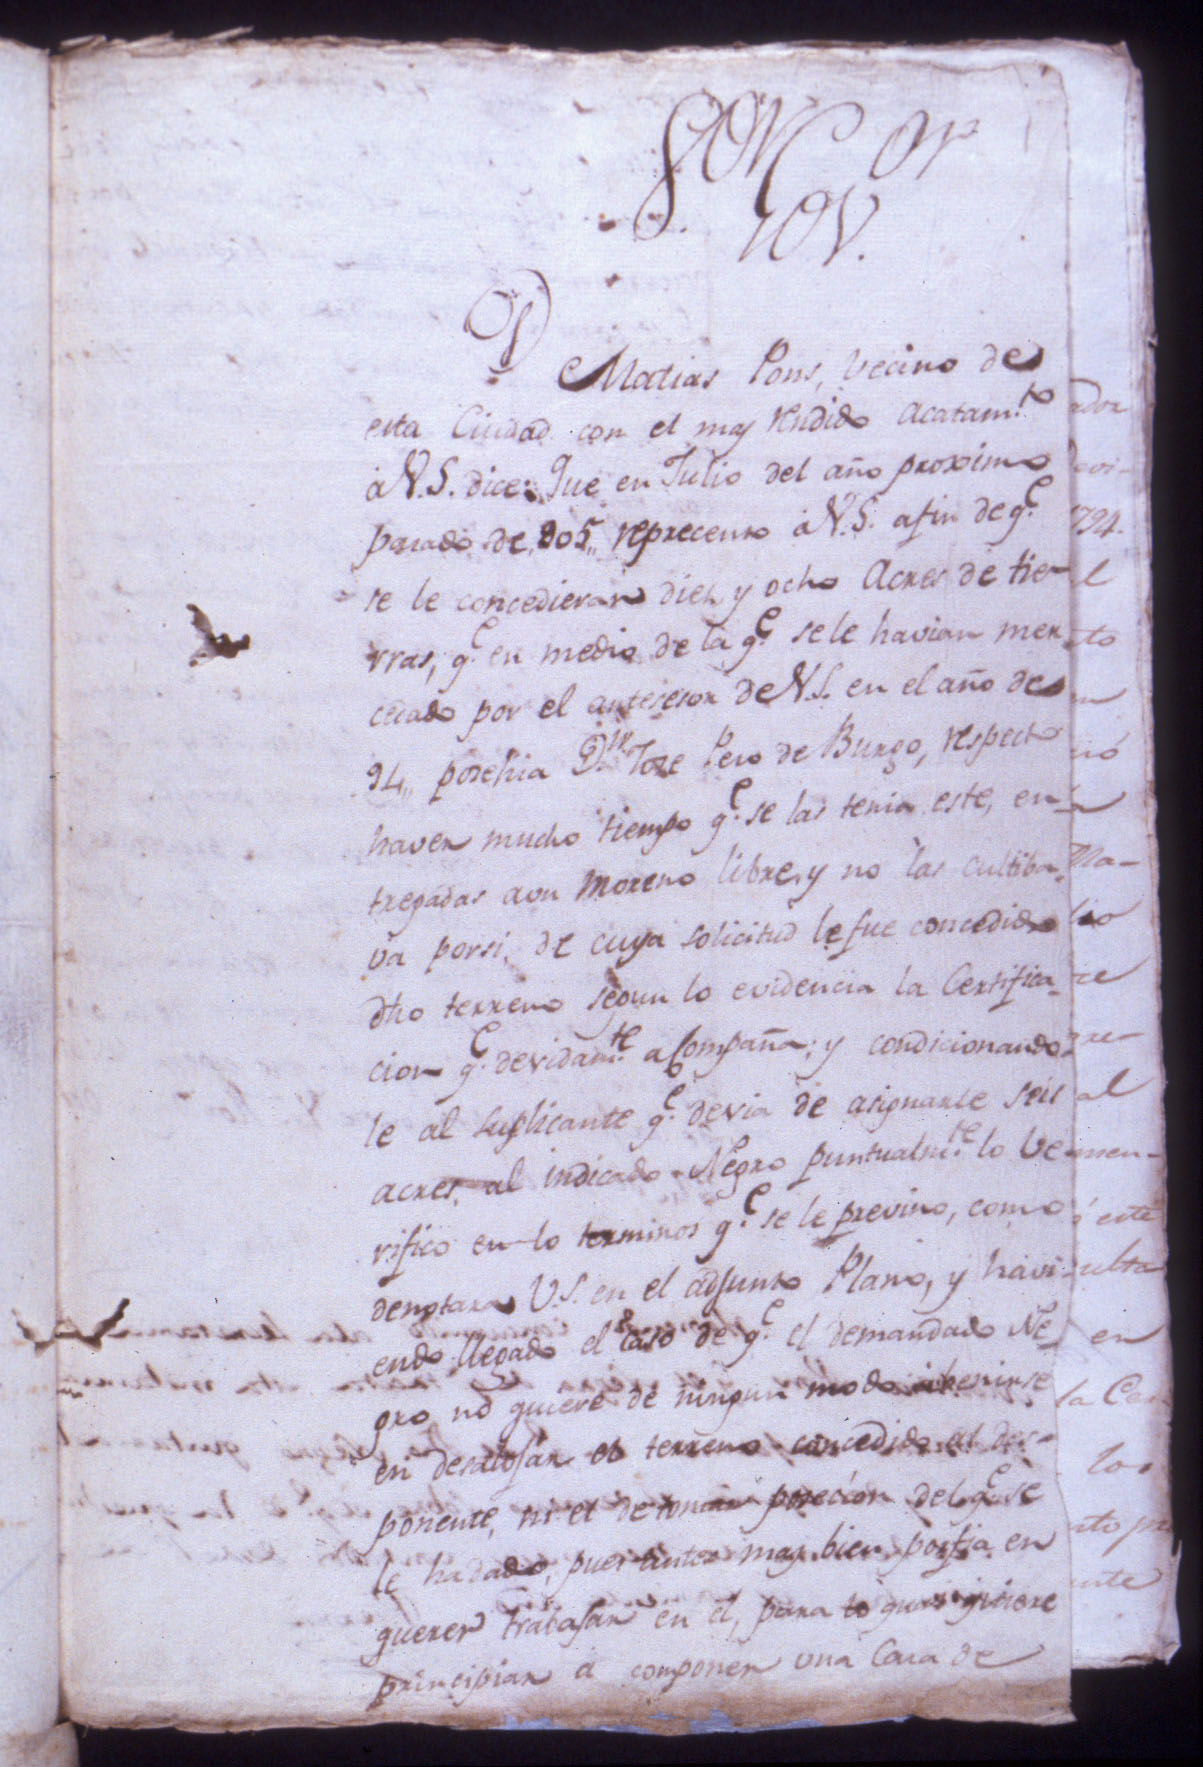 S.or Gov.or
D
Matias Pons, vecino de
esta Ciudad con el mas rendido acatam.to
à V.S. dice: Que en Julio del año proximo
pasado de, 805,, reprecento à V.S. afin de q.e
se le concedieran diez y ocho Acres de tie-
rras, q.e en medio de la q.e se le havian mer
cedado por el antesesor de V.S. en el año de
94,, posehia D.n Jose Pero de Burgo, respecto
haver mucho tiempo q.e se las tenia este, en-
tregadas aun Moreno libre, y no las cultiba-
va porsi, de cuya solicitud le fue concedido
dho terreno segun lo evidencia la Certifica-
cion q.e devidam.te acompaña; y condicionando
le al suplicante q.e devia de asignarle seis
acres, al indicado Negro puntualm.te lo ve
rifico en lo terminos q.e se le previno, como
denotara V.S. en el adjunto Plano, y havi
endo llegado el caso de q.e el demandado Ne
gro no quiere de ningun modo abenirse
en desalojar el terreno concedido al des-
ponente, ni el de tomar poseción del q.e se
le ha dado, pues antes mas bien porfia en
querer trabajar en el, para lo qual quiere
principiar a componer una Casa de
ador
794.
l
to
Ma-
al
men-
este
ulta
en
la Cer
lo
nte